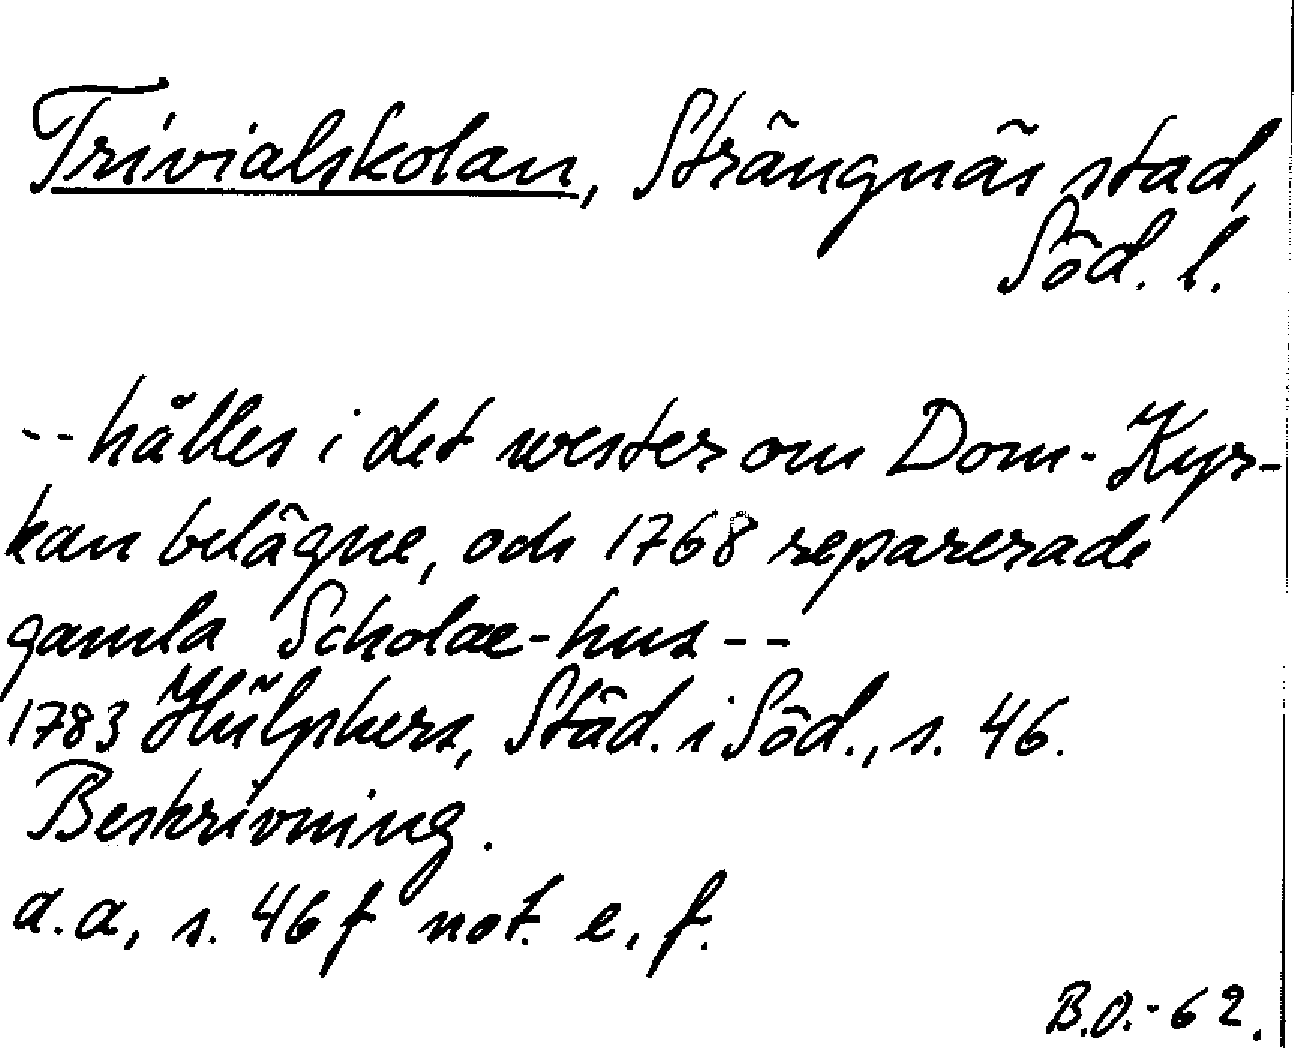 Trivialskolan, Strängnäs stad,
Söd. l.
-- hålles i det wester om Dom-Kyr-
kan belägne, och 1768 reparerade
gamla Scholae-hus --
1783 Hülphers, Städ. i Söd., s. 46.
Beskrivning.
a.a, s. 46 f not. e, f.
B.O.-62.